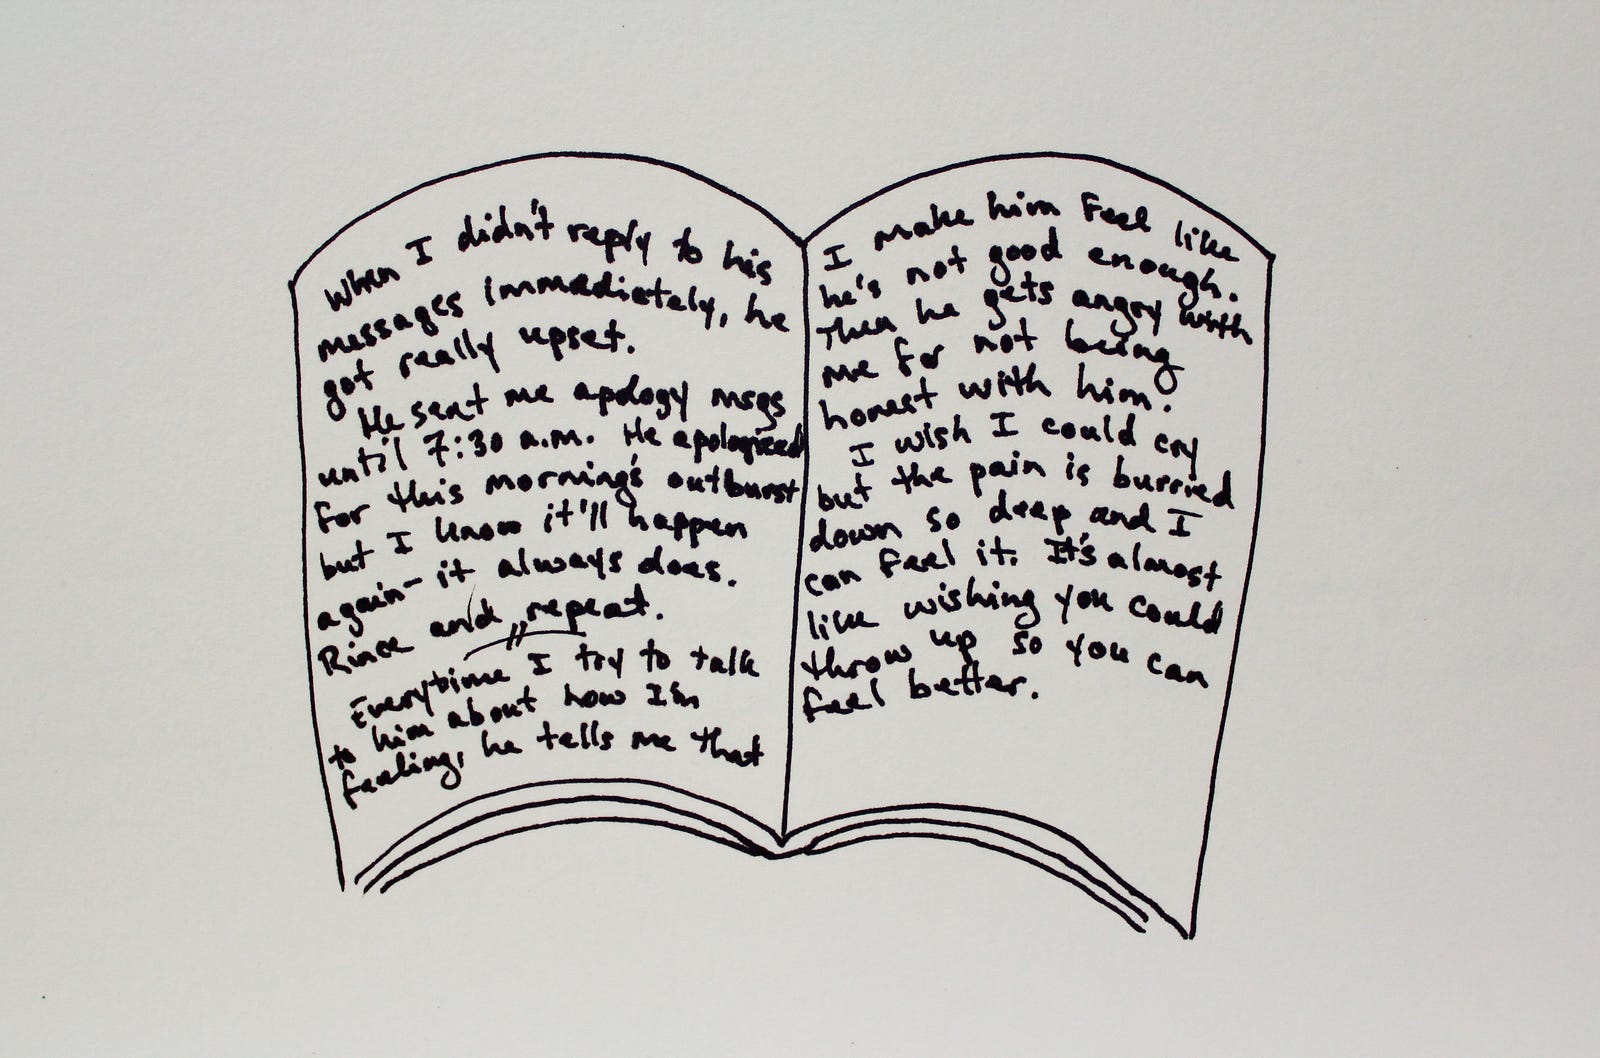 When I didn't reply to his
messages immediately, he
got really upset.
He sent me apology msgs
until 7:30 a.m. He apologized
for this morning's outburst
but I know it'll happen
again - it always does.
Rince and repeat.
Everytime I try to talk
to him about how I'm
feeling, he tells me that
I make him feel like
he's not good enough.
Then he gets angry with
me for not being
honest with him.
I wish I could cry
but the pain is burried
down so deep and I
can feel it. It's almost
like wishing you could
throw up so you can
feel better.